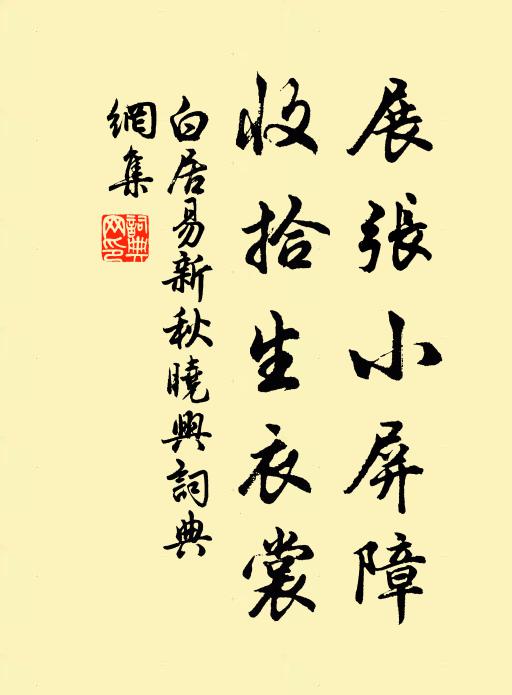 展張小屏障
收拾生衣裳
白居易新秋曉興詞典
網集
詞典
网印